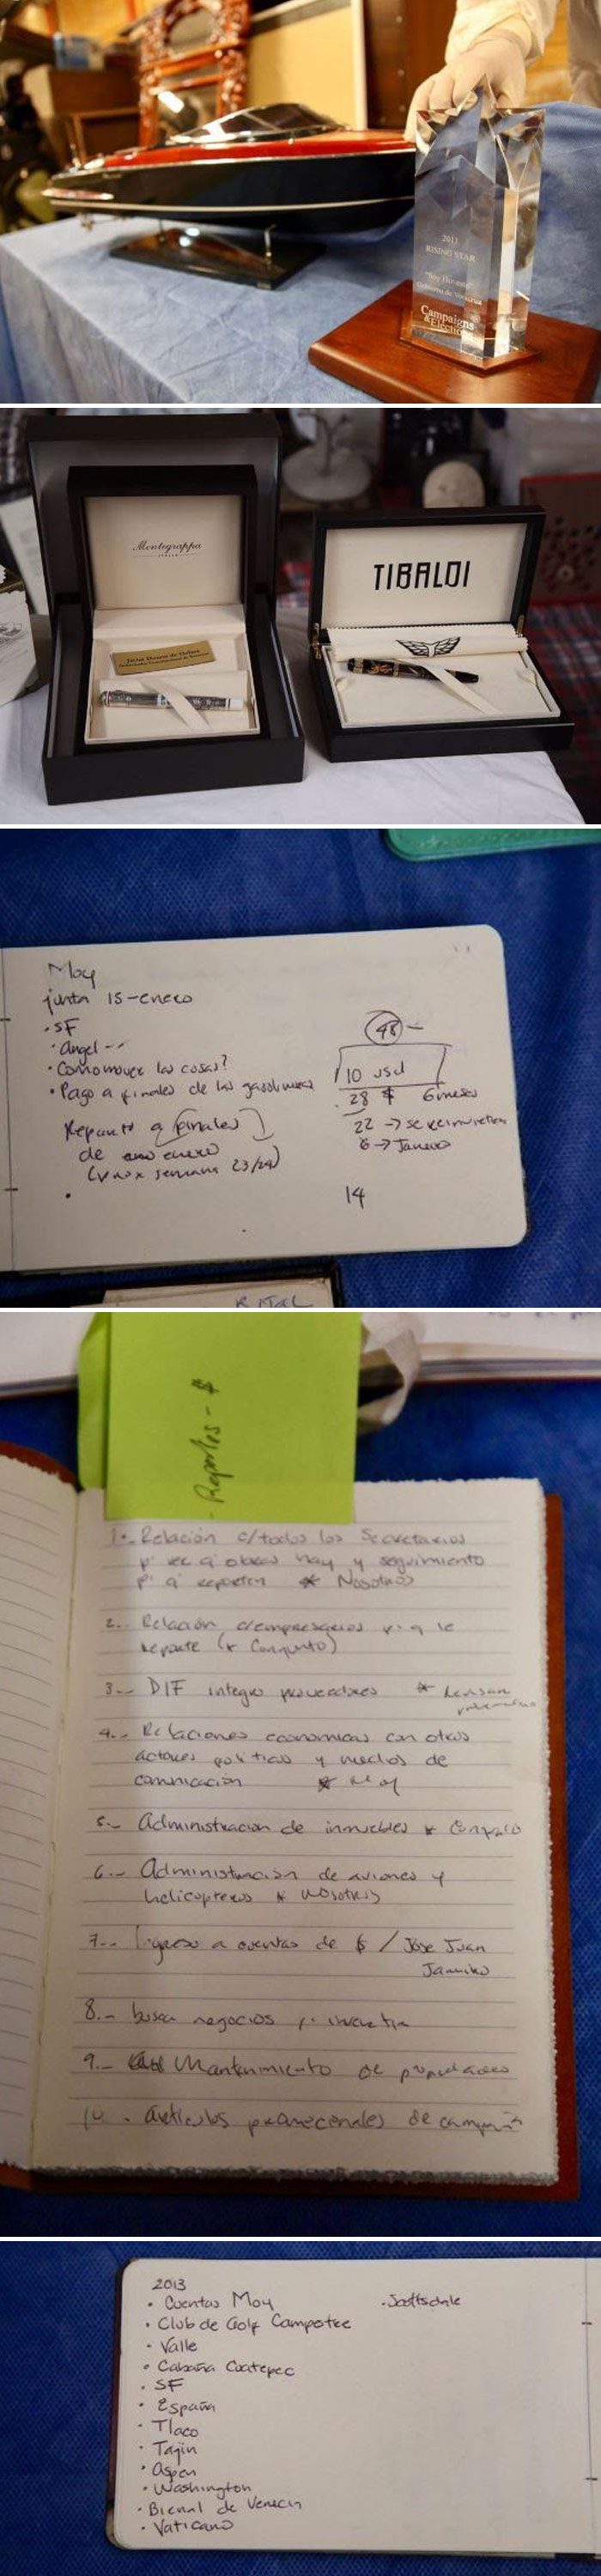 2011
RISING STAR
Gobierno de Veracruz
Campaigns
& Elections
Montegrappa
ITALIA
Javier Duarte de Ochoa
TIBALDI
Moy
junta 15-enero
• SF
• Angel --
• Como mover las cosas?
• Pago a finales de las gasolineras
Reparto a finales
de enero
semana 23/24)
48 -
10 usd
28 $ 6 meses
22 →
6 → Janeiro
14
Reportes - $
1.- Relación c/todos los Secretarios
p' ver q' obras hay y seguimiento
p' q' reporten * Nosotros
2.- Relación c/empresarios p' q' le
reporte (* Conjunto)
3.- DIF integro proveedores * Revisan
4.- Relaciones economicas con otros
actores politicos y medios de
comunicación * Moy
5.- Administracion de inmuebles *
6.- Administración de aviones y
helicopteros * Nosotros
7.- Ingreso a cuentas de $ / Jose Juan
Janeiro
8.- buscar negocios p' invertir
9.- Mantenimiento de propiedades
10.- articulos promocionales de campaña
2013
• Cuentas Moy
• Scottsdale
• Club de Golf Campestre
• Valle
• Cabaña Coatepec
• SF
• España
• Tlaco
• Tajin
• Aspen
• Washington
• Bienal de Venecia
• Vaticano